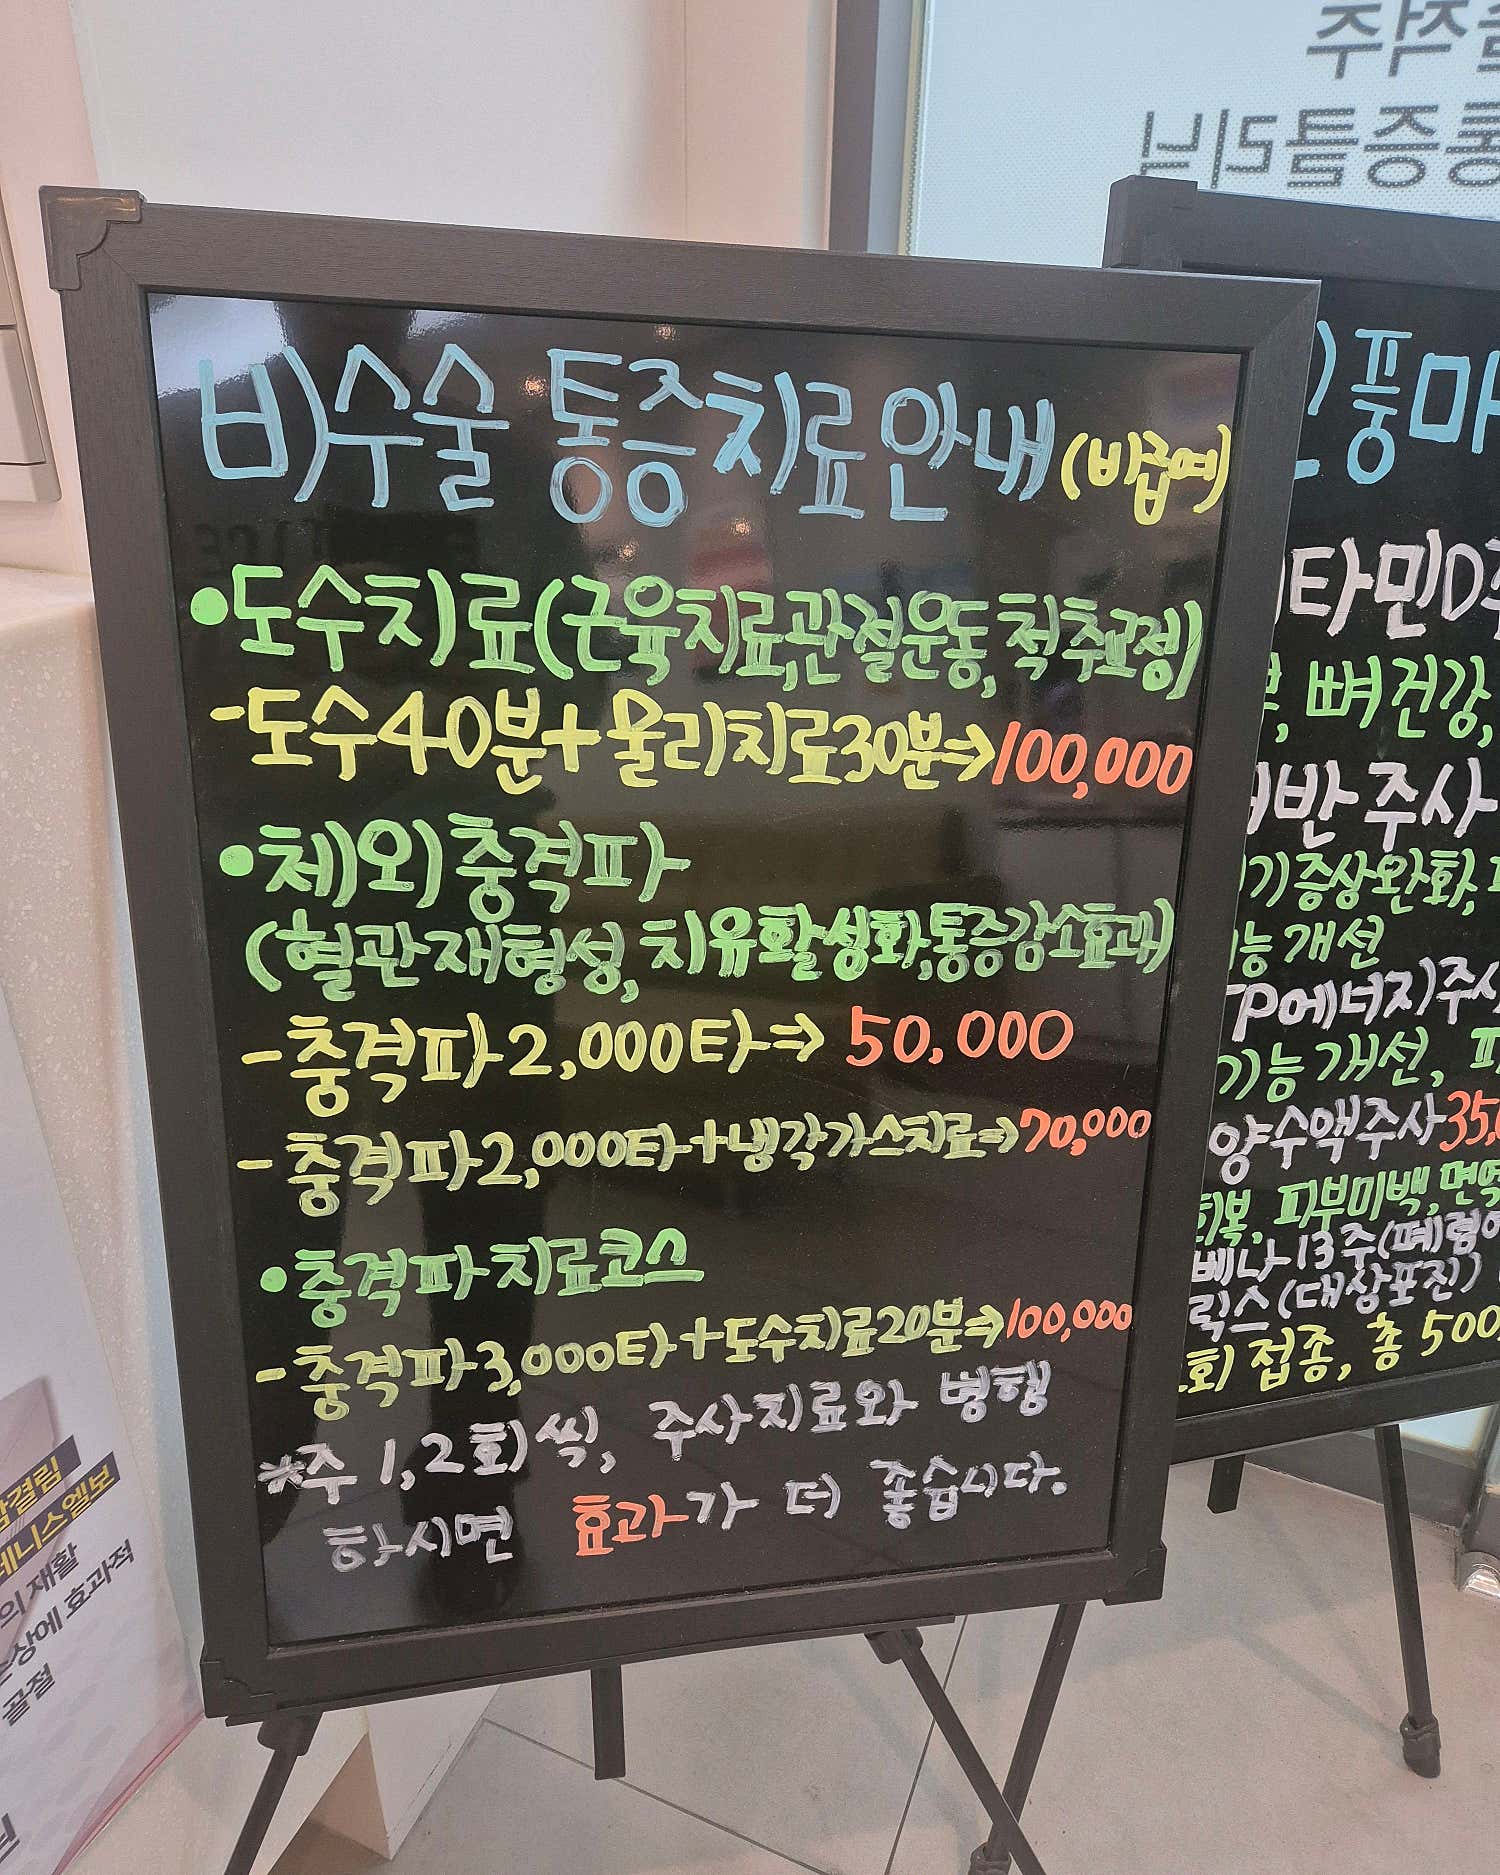 비수술 통증치료안내 (비급여)
•도수치료(근육치료,관절운동,척추교정)
-도수40분+물리치료30분⇒100,000
•체외충격파
(혈관재형성, 치유활성화,통증감소효과)
-충격파2,000타⇒ 50,000
-충격파2,000타+냉각가스치료⇒70,000
•충격파치료코스
-충격파3,000타+도수치료20분⇒100,000
*주 1,2회씩, 주사치료와 병행
하시면 효과가 더 좋습니다.
통증클리닉
풍마
타민D
뼈건강,
반주사
기증상완화,
능개선
TP에너지주사
기능개선,
양수액주사35,
회복, 피부미백,면역
베나13주(폐렴
릭스(대상포진)
회) 접종, 총 500
테니스엘보
의 재활
손상에 효과적
골절